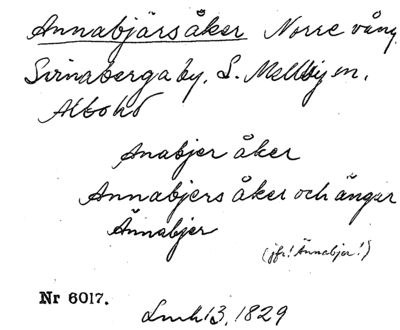 Annabjärsåker Norre vång
Svinaberga by, S. Mellby sn,
Albo hd
Anabjer åker
Annabjers åker och ängar
Ännabjer
(jfr! Ännabjer!)
Nr 6017.
Lmh 13, 1829